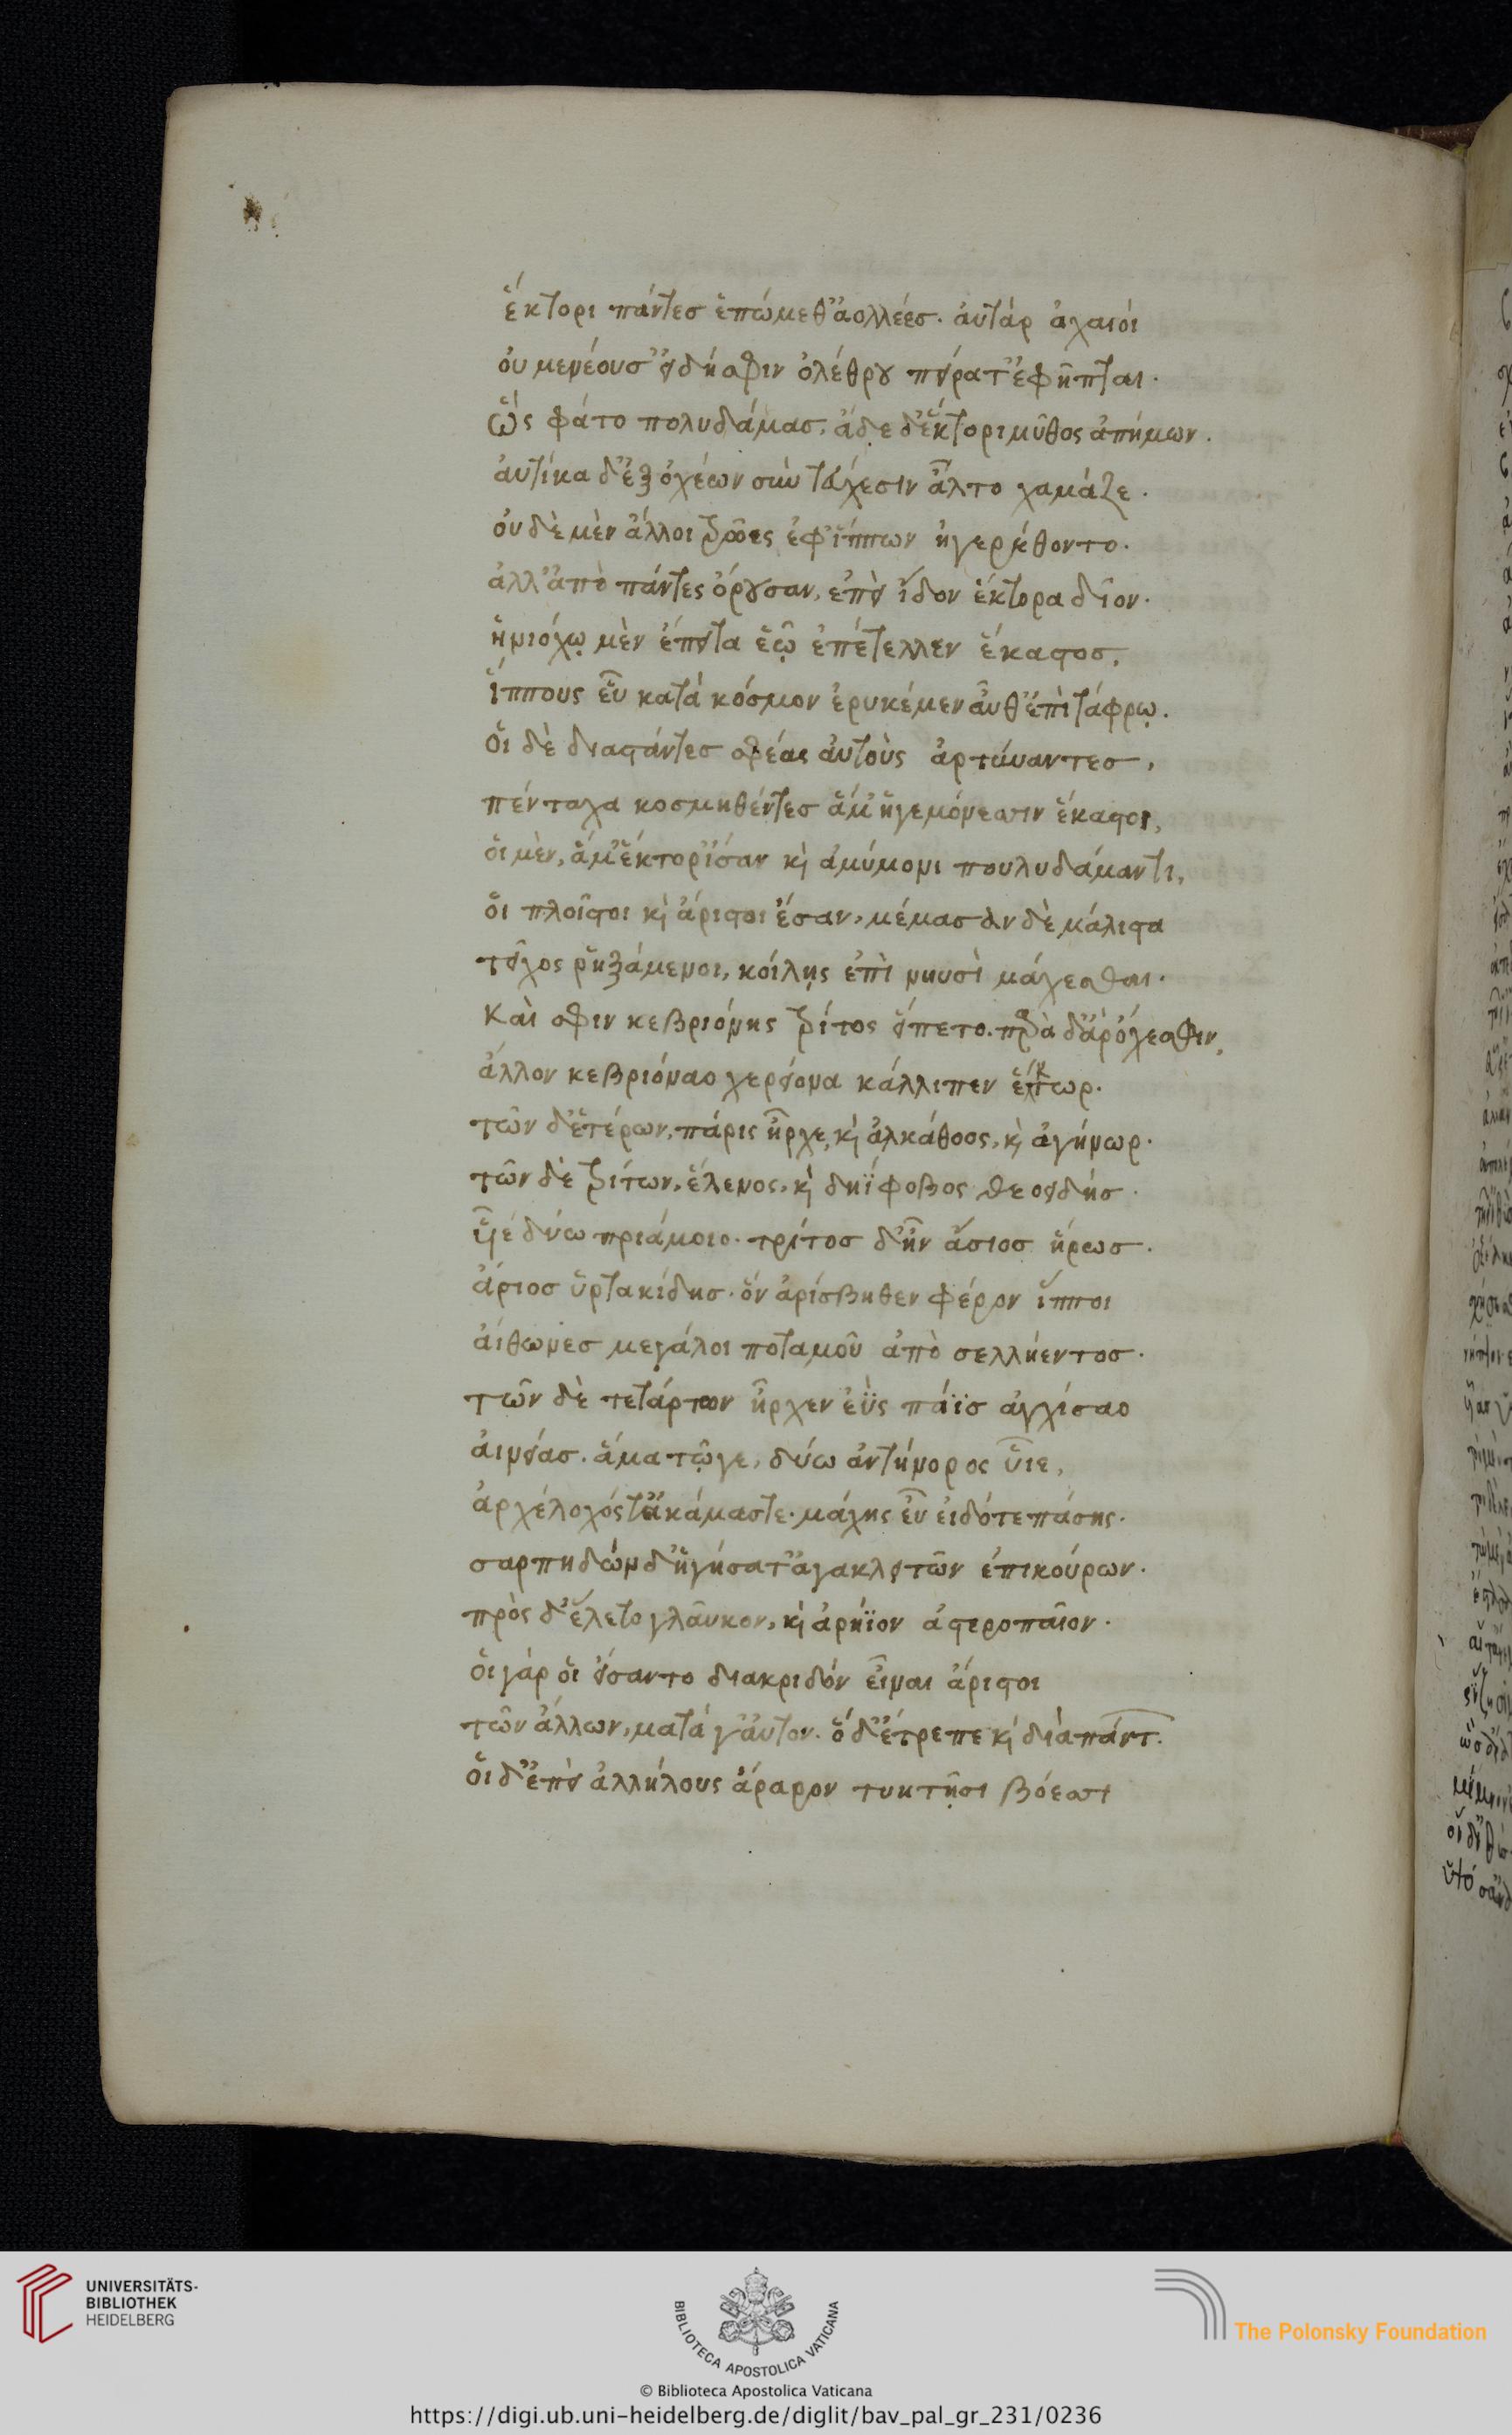 ἕκτορι πάντεσ ἑπώμεθ' ἀολλέεσ. ἀυτὰρ ἀχαιόι
ὀυ μενέουσ' ἐι δή σφιν ὀλέθρου πείρατ' ἐφῆπται.
ὣς φάτο πολυδάμασ, ἅδε δ' ἕκτορι μῦθος ἀπήμων.
ἀυτίκα δ' ἐξ ὀχέων σὺν τάχεσιν ἆλτο χαμάζε.
ὀυδὲ μὲν ἄλλοι τρῶες ἐφ' ἵππων ἠγερέθοντο.
ἀλλ' ἀπὸ πάντες ὄρουσαν, ἐπὲι ἴδον ἕκτορα δῖον.
ἡνιόχῳ μὲν ἔπειτα ἑῷ ἐπέτελλεν ἕκαστοσ,
ἵππους εὖ κατὰ κόσμον ἐρυκέμεν ἆυθ' ἐπὶ τάφρῳ.
ὅι δὲ διαστάντεσ σφέας ἀυτοὺς ἀρτύναντεσ,
πένταχα κοσμηθέντεσ ἅμ' ἡγεμόνεσσιν ἕκαστοι,
ὅι μὲν, ἅμ' ἕκτορ' ἴσαν κὶ ἀμύμονι πουλυδάμαντι,
ὅι πλοῖστοι κὶ ἄριστοι ἔσαν, μέμασαν δὲ μάλιστα
τεῖχος ῥηξάμενοι, κοίλῃς ἐπὶ νηυσὶ μάχεσθαι.
Καὶ σφιν κεβριόνης τρίτος εἵπετο. παρὰ δ' ἄρ' ὄχεσφιν,
ἄλλον κεβριόναο χερείονα κάλλιπεν ἕκτωρ.
τῶν δ' ἑτέρων, πάρις ἦρχε, κὶ ἀλκάθοος, κὶ ἀγήνωρ.
τῶν δὲ τρίτων, ἕλενος, κὶ δηΐφοβος θεοειδήσ.
υἷε δύω πριάμοιο. τρίτοσ δ' ἦν ἄσιοσ ἥρωσ.
ἄσιοσ ὑρτακίδησ. ὃν ἀρίσβηθεν φέρον ἵπποι
ἀίθωνεσ μεγάλοι ποταμοῦ ἀπὸ σελλήεντοσ.
τῶν δὲ τετάρτων ἦρχεν ἐῢς πάϊσ ἀγχίσαο
ἀινείασ. ἅμα τῷγε, δύω ἀντήνορος υἷε,
ἀρχέλοχός τ' ἀκάμαστε. μάχης ἐῦ ἐιδότε πάσης.
σαρπηδὼν δ' ἡγήσατ' ἀγακλειτῶν ἐπικούρων.
πρὸς δ' ἕλετο γλᾶυκον, κὶ ἀρήϊον ἀστεροπαῖον.
ὅι γάρ ὅι ἔισαντο διακριδὸν εἶναι ἄριστοι
τῶν ἄλλων, ματά γ' ἀυτον. ὅ δ' ἔτρεπε κὶ διὰ πάντ.
ὅι δ' ἐπὲι ἀλλήλους ἄραρον τυκτῇσι βόεσσι
UNIVERSITÄTS-
BIBLIOTHEK
HEIDELBERG
BIBLIOTECA APOSTOLICA VATICANA
The Polonsky Foundation
© Biblioteca Apostolica Vaticana
https://digi.ub.uni-heidelberg.de/diglit/bav_pal_gr_231/0236